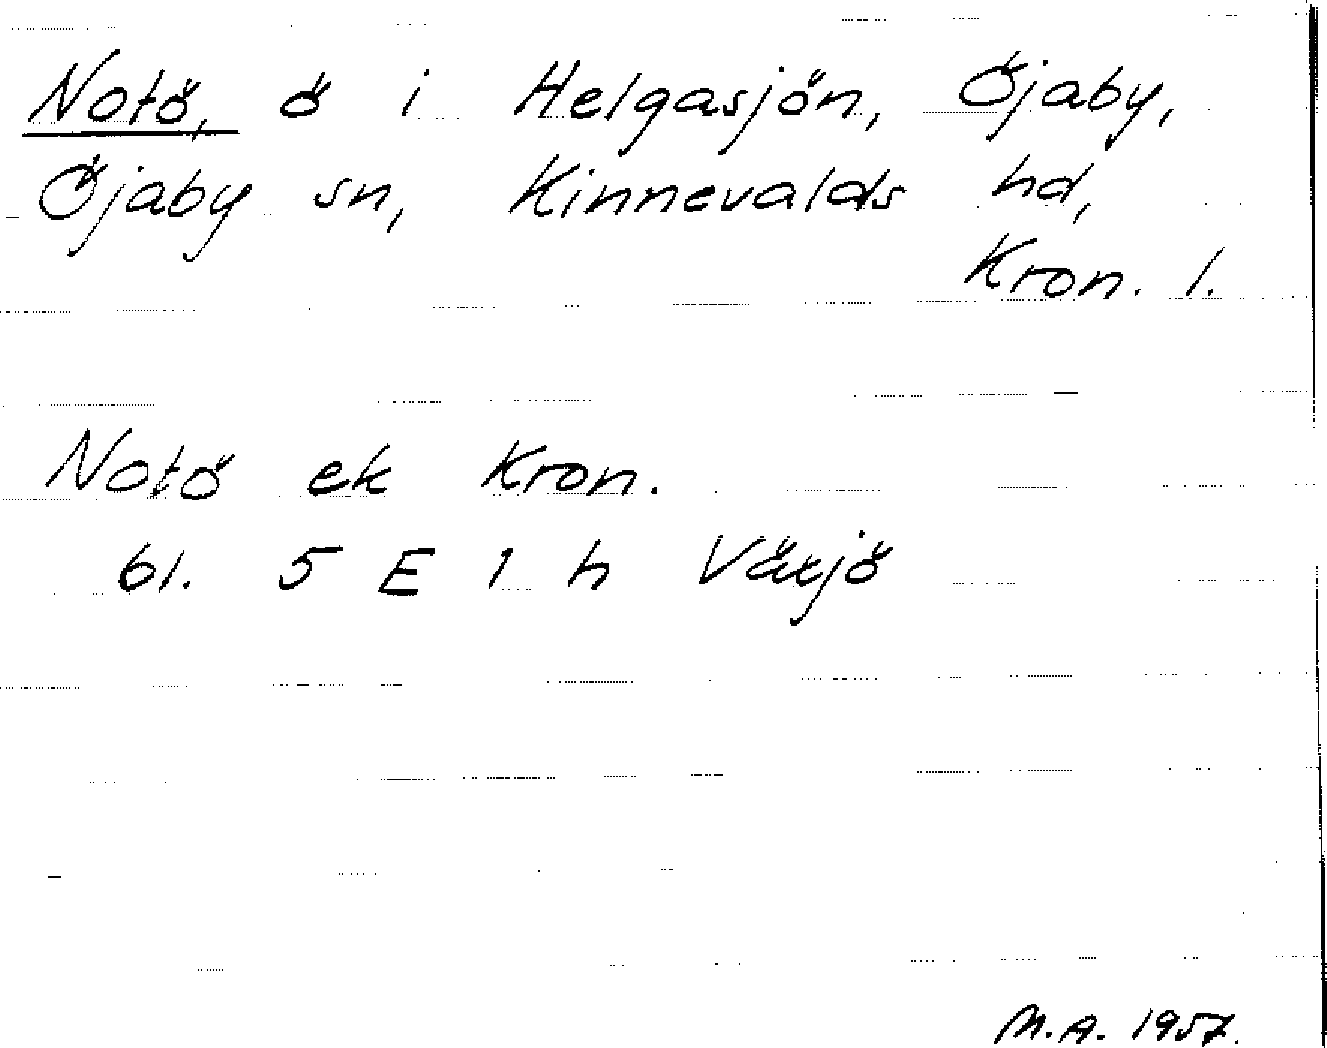 Notö, ö i Helgasjön, Öjaby,
Öjaby sn, Kinnevalds hd,
Kron. l.
Notö ek Kron.
bl. 5 E 1 h Växjö
M.A. 1957.